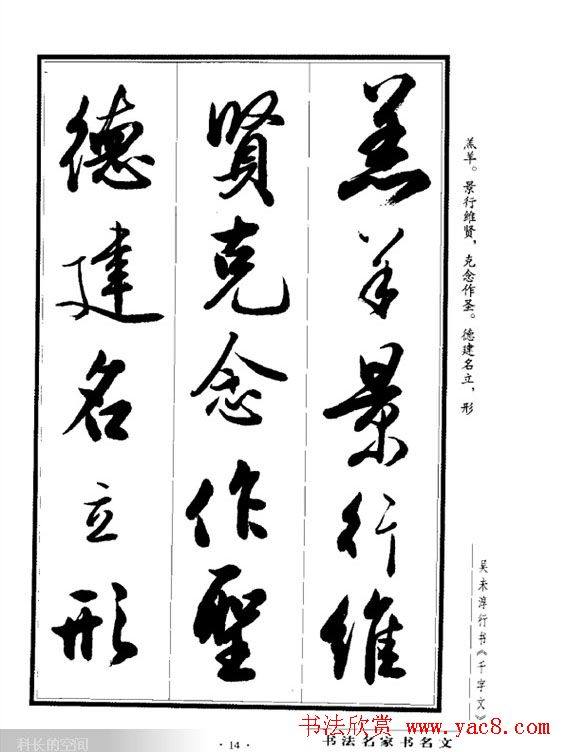 羔羊景行維
賢克念作聖
德建名立形
羔羊。景行维贤，克念作圣。德建名立，形
吴未淳行书《千字文》
书法欣赏 www.yac8.com
科长的空间
· 14 ·
书法名家书名文